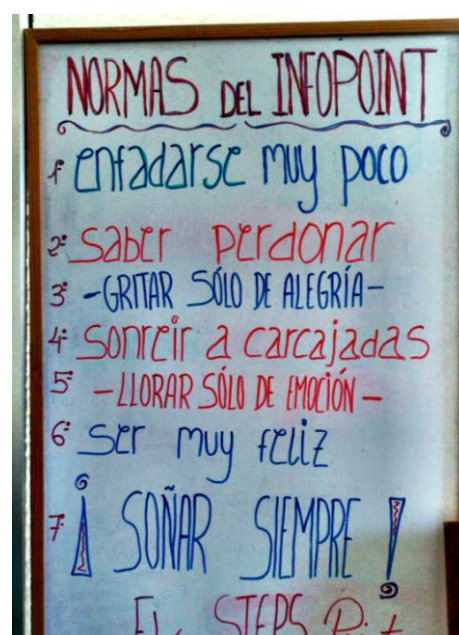 NORMAS DEL INFOPOINT
1ª enfadarse muy poco
2ª saber perdonar
3ª -GRITAR SÓLO DE ALEGRÍA-
4ª sonreir a carcajadas
5ª -LLORAR SÓLO DE EMOCIÓN-
6ª ser muy feliz
7ª ¡SOÑAR SIEMPRE!
STEPS